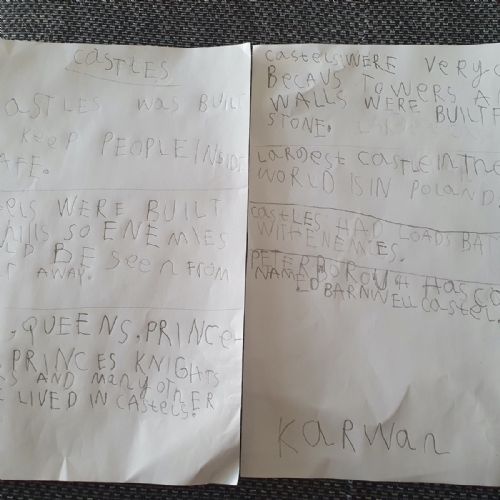 CASTLES
CASTLES WAS BUILT
KEEP PEOPLE INSIDE
AFE.
els WERE BUILT
hills SO ENEMIES
LD BE SEEN FROM
AWAY.
. QUEENS. PRINCE-
. PRINCES KNIGHTS
S AND MANY OTHER
E LIVED IN CASTELS.
CASTELS WERE VERY
BECAUS TOWERS A
WALLS WERE BUILT F
STONE.
LARGEST CASTLE IN THE
WORLD IS IN POLAND
CASTLES HAD LOADS BAT
WITH ENEMIES.
PETERBOROUGH HAS CA
NAMED BARNWELL CASTEL.
KARWAN